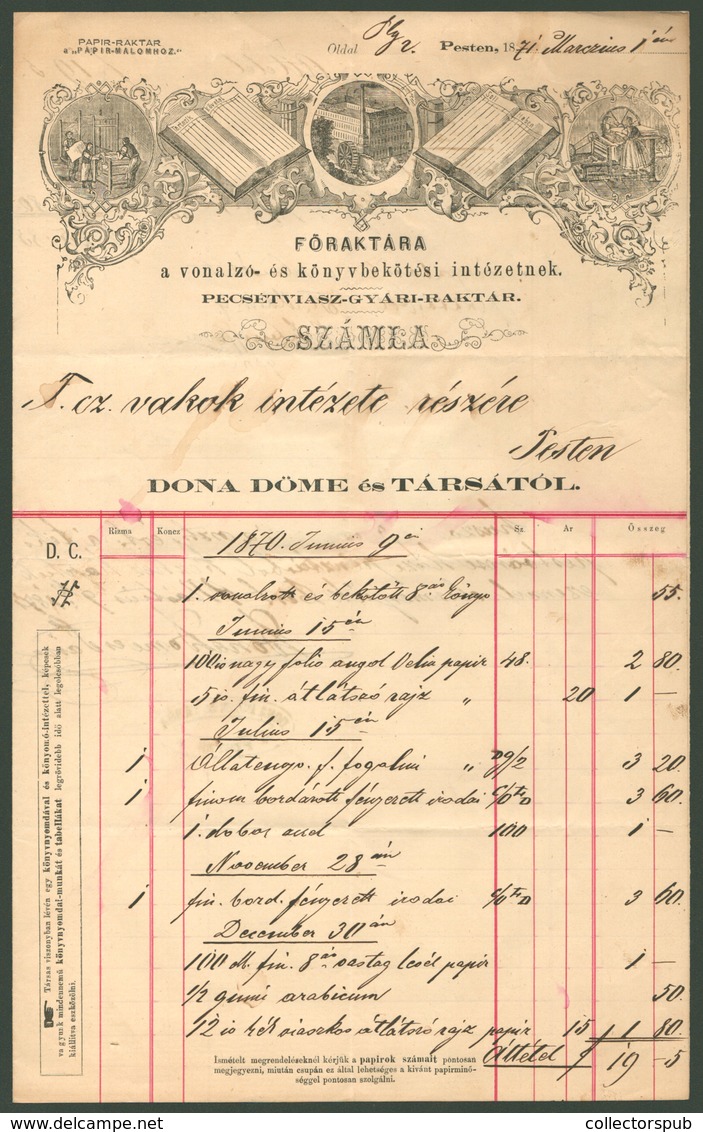 PAPIR-RAKTÁR
a „PAPIR-MALOMHOZ."
Oldal Pesten, 1871 Marczius 1 én
FŐRAKTÁRA
a vonalzó- és könyvbekötési intézetnek.
PECSÉTVIASZ-GYÁRI-RAKTÁR.
SZÁMLA
T. cz. vakok intézete részére
Pesten
DONA DÖME és TÁRSÁTÓL.
D. C. Rizma Koncz Sz. Ár Összeg
1870. Junius 9 én
1. vonalzott és bekötött 8 könyv 55.
Junius 15 én
100 nagy folio angol papir 48. 2 80.
5 iv. fin. átlátszó rajz „ 20 1 —
Julius 15 én
1 f. fogalmi „ 3 20.
1 finom bordázott fényezett irodai 3 60.
1. 100 1 —
November 28 án
1 fin. bord. fényezett irodai 3 60
December 30 án
100 fin. 8 vastag levél papir 1 —
1/2 gumi arabicum 50.
12 iv kék viaszkos átlátszó rajz papir 15 1 80.
Áttétel f 19 -5
Ismételt megrendeléseknél kérjük a papirok számait pontosan
megjegyezni, miután csupán ez által lehetséges a kivánt papirminő-
séggel pontosan szolgálni.
Társas viszonyban lévén egy könyvnyomdával és könyomó-intézettel, képesek
vagyunk mindennemű könyvnyomdai-munkát és tabellákat legrövidebb idő alatt legolcsóbban
kiállitva eszközölni.
collectorspub